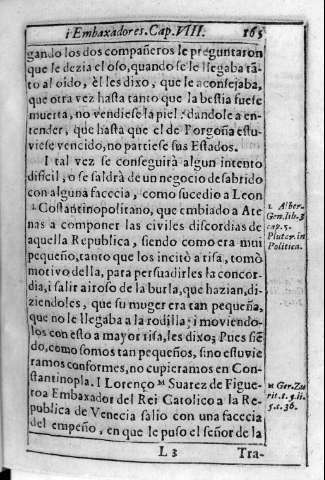 i Embaxadores. Cap. VIII. 165
gando los dos compañeros le preguntaron
que le dezia el oso, quando se le llegaba tã-
to al oido, èl les dixo, que le aconsejaba,
que otra vez hasta tanto que la bestia fuese
muerta, no vendiese la piel: dandole a en-
tender, que hasta que el de Porgoña estu-
viese vencido, no partiese sus Estados.
I tal vez se conseguirà algun intento
dificil, o se saldrà de un negocio desabrido
con alguna facecia, como sucedio a Leon
Costantinopolitano, que embiado a Ate
nas a componer las civiles discordias de
aquella Republica, siendo como era mui
pequeño, tanto que los incitò a risa, tomò
motivo della, para persuadirles la concor-
dia, i salir airoso de la burla, que hazian, di-
ziendoles, que su muger era tan pequeña,
que no le llegaba a la rodilla; i moviendo-
los con esto a mayor risa, les dixo; Pues siē
do, como somos tan pequeños, sino estuvie
ramos conformes, no cupieramos en Con-
stantinopla. I Lorenço M Suarez de Figue-
roa Embaxador del Rei Catolico a la Re-
publica de Venecia salio con una facecia
del empeño, en que le puso el señor de la
L 3 Tra-
1. Alber.
Gen. lib. 3
cap. 5.
Plutar. in
Politica.
M Ger. Zu
rit. t. 5. li.
5. c. 36.